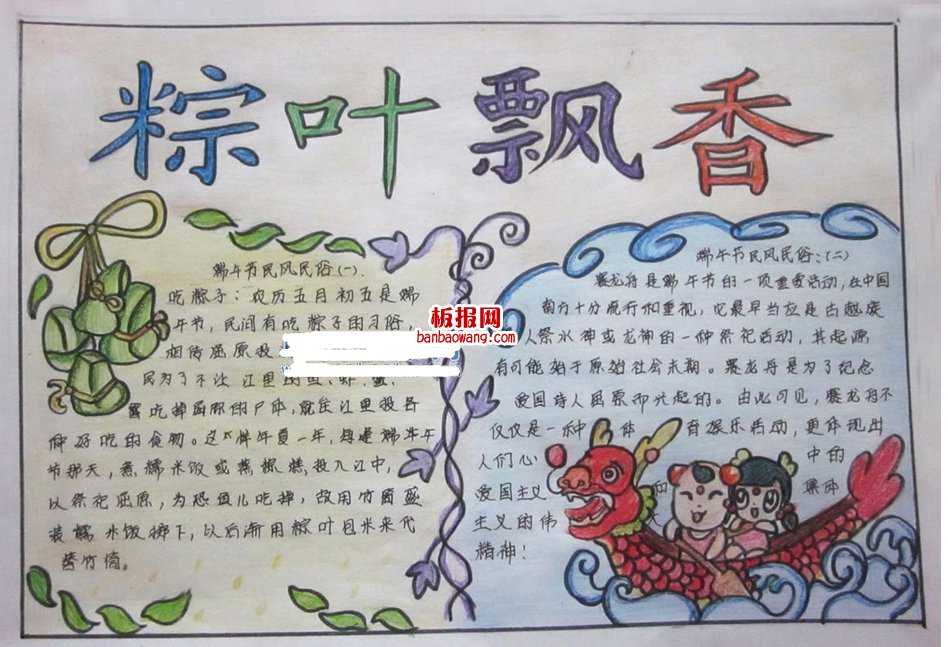 粽叶飘香
端午节民风民俗(一)
吃粽子：农历五月初五是端
午节，民间有吃粽子的习俗，
相传屈原投
民为了不让江里的鱼、虾、蟹、
鳖吃掉屈原的尸体，就往江里投各
种好吃的食物。这样年复一年，每逢端午
节那天，煮糯米饭或蒸粽糕投入江中，
以祭祀屈原，为恐鱼儿吃掉，故用竹筒盛
装糯米饭掷下，以后渐用粽叶包米来代
替竹筒。
端午节民风民俗：(二)
赛龙舟是端午节的一项重要活动，在中国
南方十分流行和重视，它最早当应是古越族
人祭水神或龙神的一种祭祀活动，其起源
有可能始于原始社会末期。赛龙舟是为了纪念
爱国诗人屈原而兴起的。由此可见，赛龙舟不
仅仅是一种体育娱乐活动，更体现出
人们心中的
爱国主义和集体
主义的伟大
精神！
板报网
banbaowang.com